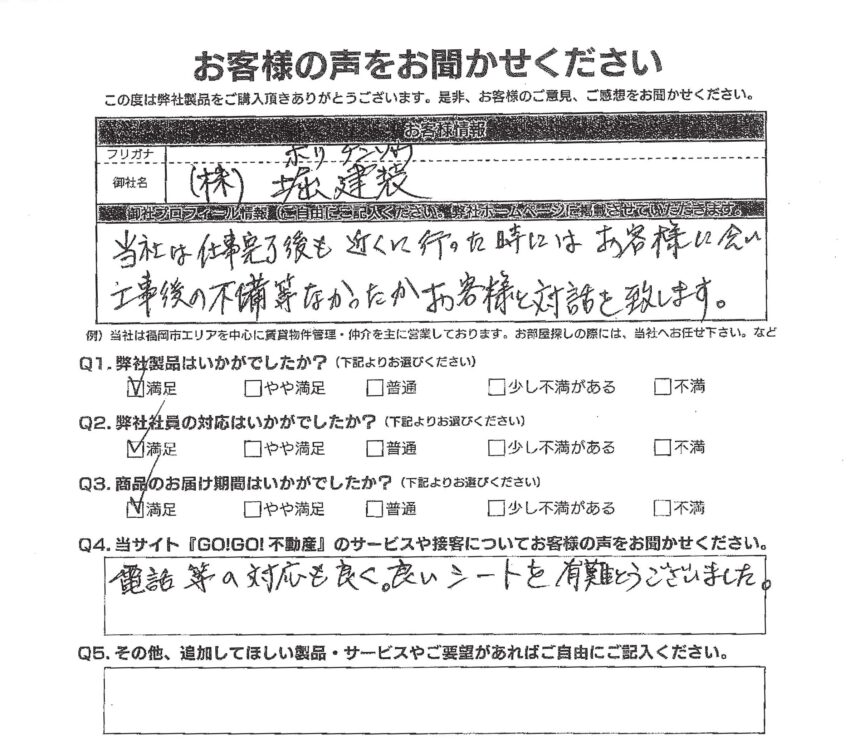 お客様の声をお聞かせください
この度は弊社製品をご購入頂きありがとうございます。是非、お客様のご意見、ご感想をお聞かせください。
お客様情報
フリガナ ホリ ケンソウ
御社名 (株) 堀建装
御社プロフィール情報(ご自由にご記入ください。弊社ホームページに掲載させていただきます。)
当社は仕事完了後も 近くに行った時には お客様に会い
工事後の不備等なかったかお客様と対話を致します。
例)当社は福岡市エリアを中心に賃貸物件管理・仲介を主に営業しております。お部屋探しの際には、当社へお任せ下さい。など
Q1.弊社製品はいかがでしたか?(下記よりお選びください)
☑満足 □やや満足 □普通 □少し不満がある □不満
Q2.弊社社員の対応はいかがでしたか?(下記よりお選びください)
☑満足 □やや満足 □普通 □少し不満がある □不満
Q3.商品のお届け期間はいかがでしたか?(下記よりお選びください)
☑満足 □やや満足 □普通 □少し不満がある □不満
Q4.当サイト『GO!GO!不動産』のサービスや接客についてお客様の声をお聞かせください。
電話等の対応も良く。良いシートを有難とうございました。
Q5.その他、追加してほしい製品・サービスやご要望があればご自由にご記入ください。